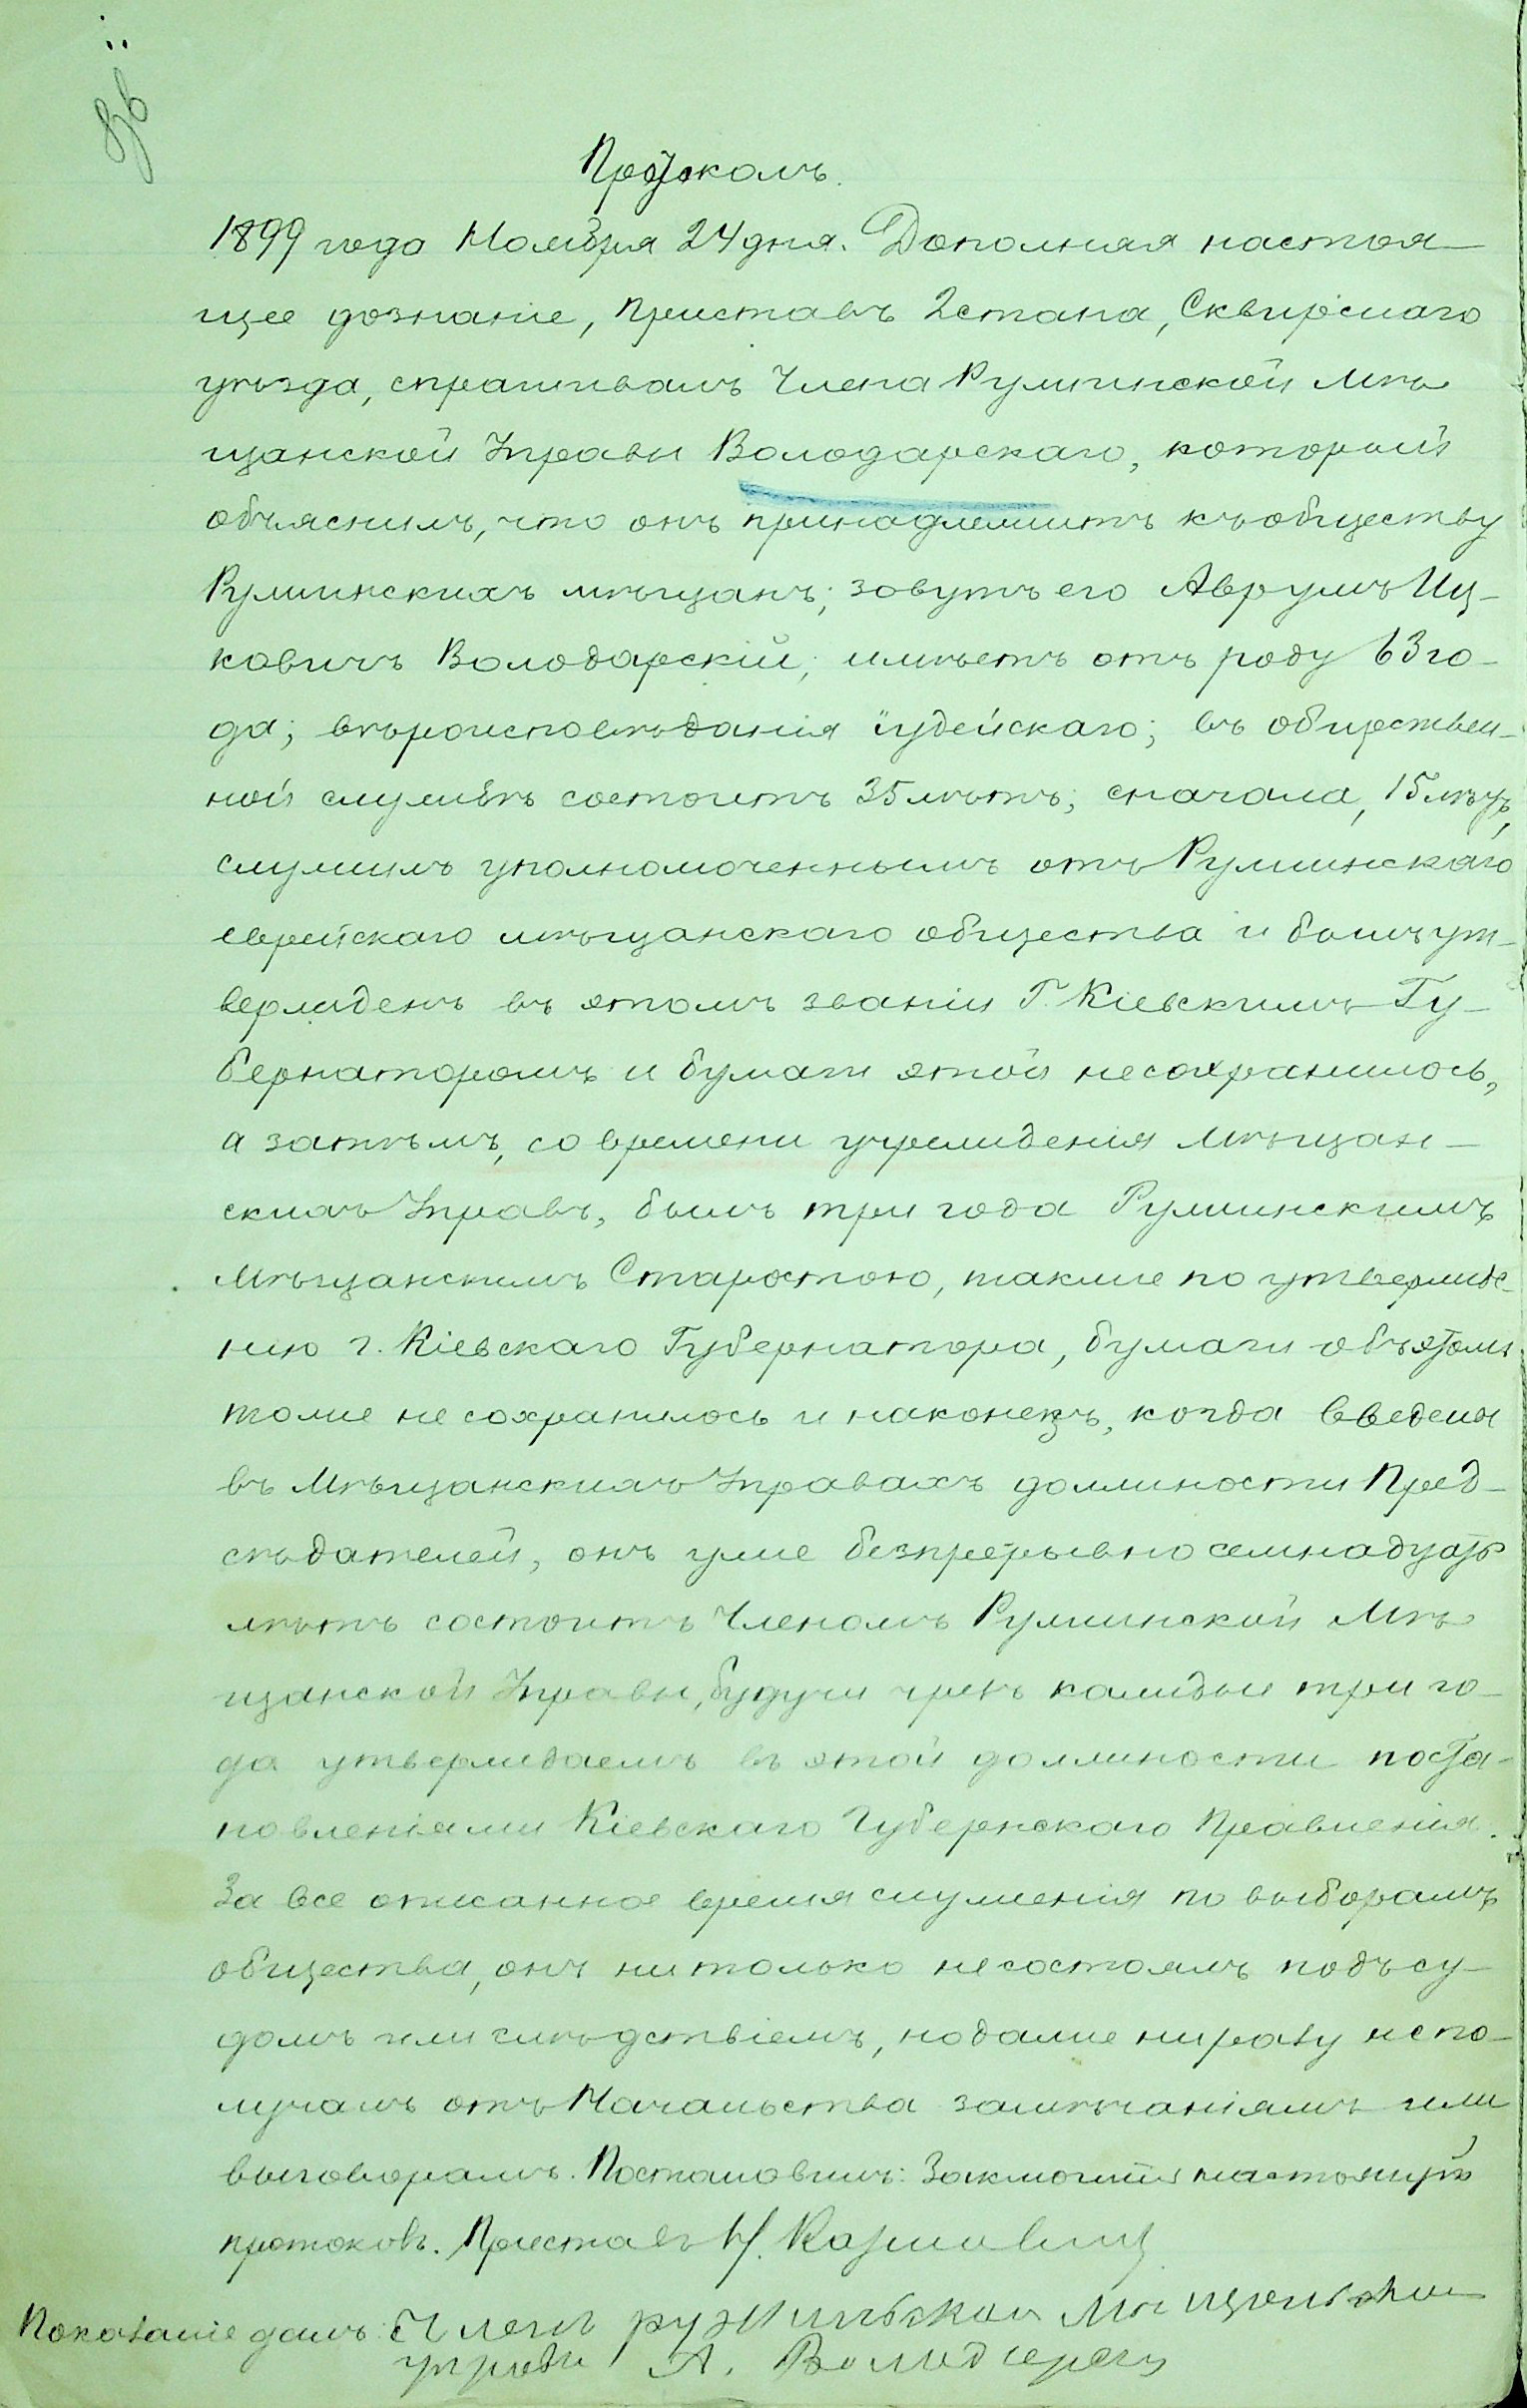 Протоколъ.
1899 года Ноября 24 дня. Дополняя настоя-
щее дознаніе, Приставъ 2 стана, Сквирскаго
уѣзда, спрашивалъ Члена Ружинской Мѣ
щанской Управы Володарскаго, который
объяснилъ, что онъ принадлежитъ къ обществу
Ружинскихъ мѣщанъ; зовутъ его Аврумъ Иц-
ковичъ Володарскій; имѣетъ отъ роду 63 го-
да; вѣроисповѣданія іудейскаго; въ обществен-
ной службѣ состоитъ 35 лѣтъ; сначала, 15 лѣтъ,
служилъ уполномоченнымъ отъ Ружинскаго
еврейскаго мѣщанскаго общества и былъ ут-
вержденъ въ этомъ званіи Г. Кіевскимъ Гу-
бернаторомъ и бумаги этой не сохранилось,
а затѣмъ, со времени учрежденія Мѣщан-
скихъ Управъ, былъ три года Ружинскимъ
Мѣщанскимъ Старостою, также по утвержде-
нію г. Кіевскаго Губернатора, бумаги объ этомъ
тоже не сохранилось и наконецъ, когда введены
въ Мѣщанскихъ Управахъ должности Пред-
сѣдателей, онъ уже безпрерывно семнадцать
лѣтъ состоитъ Членомъ Ружинской Мѣ
щанской Управы, будучи чрезъ каждые три го-
да утверждаемъ въ этой должности поста-
новленіями Кіевскаго Губернскаго Правленія.
За все описанное время служенія по выборамъ
общества, онъ ни только не состоялъ подъ су-
домъ или слѣдствіемъ, но даже ни разу не по-
лучалъ отъ Начальства замѣчаніямъ или
выговорамъ. Постановилъ: Заключить настоящій
протоколъ. Приставъ
Показаніе далъ: Членъ ружинской Мещанской
управы А. Володарскій